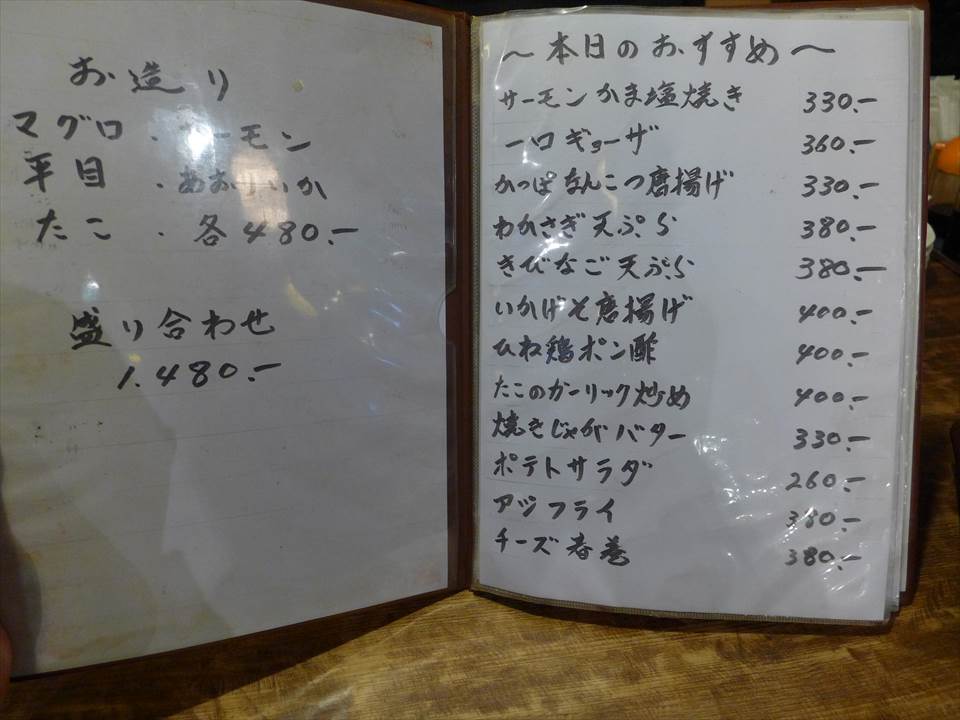 お造り
マグロ・サーモン
平目・あおりいか
たこ・各480.-
盛り合わせ
1.480.-
〜本日のおすすめ〜
サーモンかま塩焼き 330.-
一口ギョーザ 360.-
かっぱなんこつ唐揚げ 330.-
わかさぎ天ぷら 380.-
きびなご天ぷら 380.-
いかげそ唐揚げ 400.-
ひね鶏ポン酢 400.-
たこのガーリック炒め 400.-
焼きじゃがバター 330.-
ポテトサラダ 260.-
アジフライ 380.-
チーズ春巻 380.-